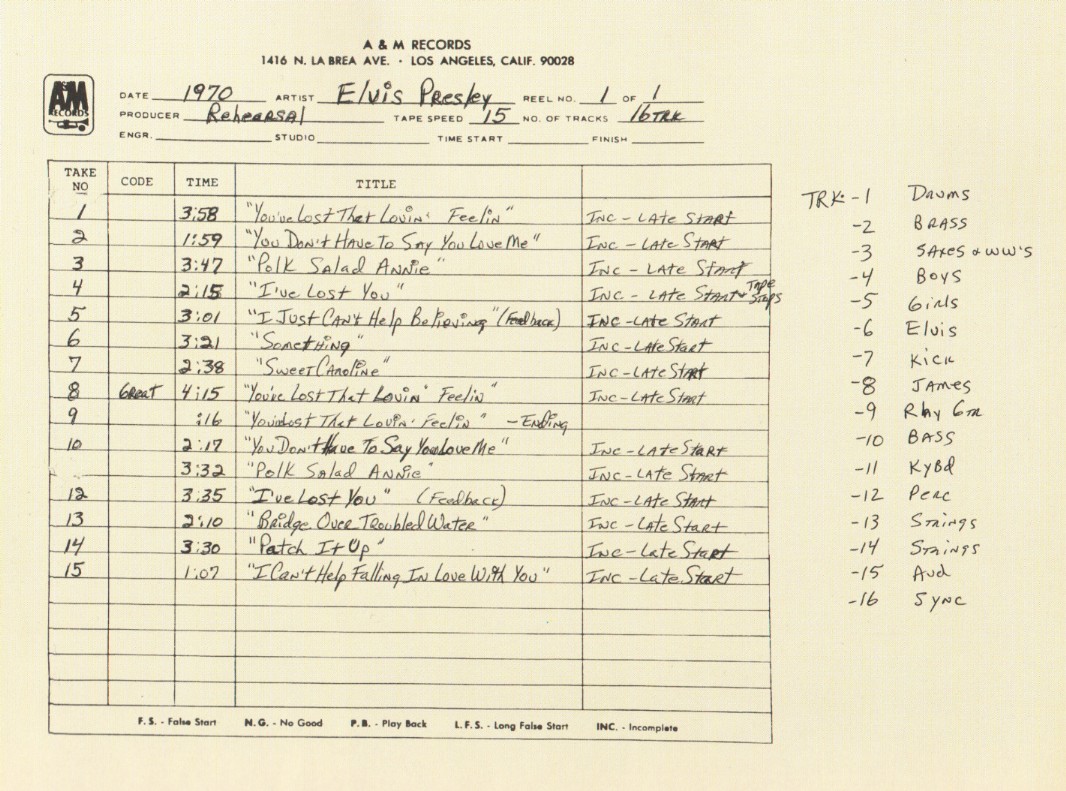 A & M RECORDS
1416 N. LA BREA AVE. · LOS ANGELES, CALIF. 90028
A&M RECORDS
DATE 1970 ARTIST Elvis Presley REEL NO. 1 OF 1
PRODUCER Rehearsal TAPE SPEED 15 NO. OF TRACKS 16 TRK
ENGR. STUDIO TIME START FINISH
TAKE NO CODE TIME TITLE
1 3:58 "You've Lost That Lovin' Feelin" INC - LATE START
2 1:59 "You Don't Have To Say You Love Me" INC - LATE START
3 3:47 "Polk Salad Annie" INC - LATE START
4 2:15 "I've Lost You" INC - LATE START + Tape Stops
5 3:01 "I Just Can't Help Believing" (Feedback) INC - LATE START
6 3:21 "Something" INC - LATE START
7 2:38 "Sweet Caroline" INC - LATE START
8 Great 4:15 "You've Lost That Lovin' Feelin" INC - LATE START
9 :16 "You've Lost That Lovin' Feelin" - Ending
10 2:17 "You Don't Have To Say You Love Me" INC - LATE START
3:32 "Polk Salad Annie" INC - LATE START
12 3:35 "I've Lost You" (Feedback) INC - LATE START
13 2:10 "Bridge Over Troubled Water" INC - LATE START
14 3:30 "Patch It Up" INC - Late Start
15 1:07 "I Can't Help Falling In Love With You" INC - Late Start
F.S. - False Start N.G. - No Good P.B. - Play Back L.F.S. - Long False Start INC. - Incomplete
TRK: -1 Drums
-2 BRASS
-3 SAXES & WW'S
-4 Boys
-5 Girls
-6 Elvis
-7 Kick
-8 James
-9 Rhy Gtr
-10 BASS
-11 KyBd
-12 Perc
-13 Strings
-14 Strings
-15 Aud
-16 Sync